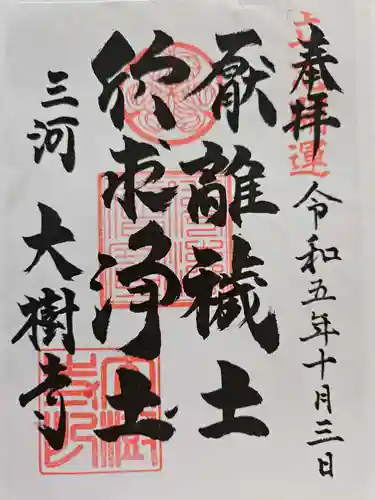 奉拝
令和五年十月三日
厭離穢土
欣求浄土
三河
大樹寺